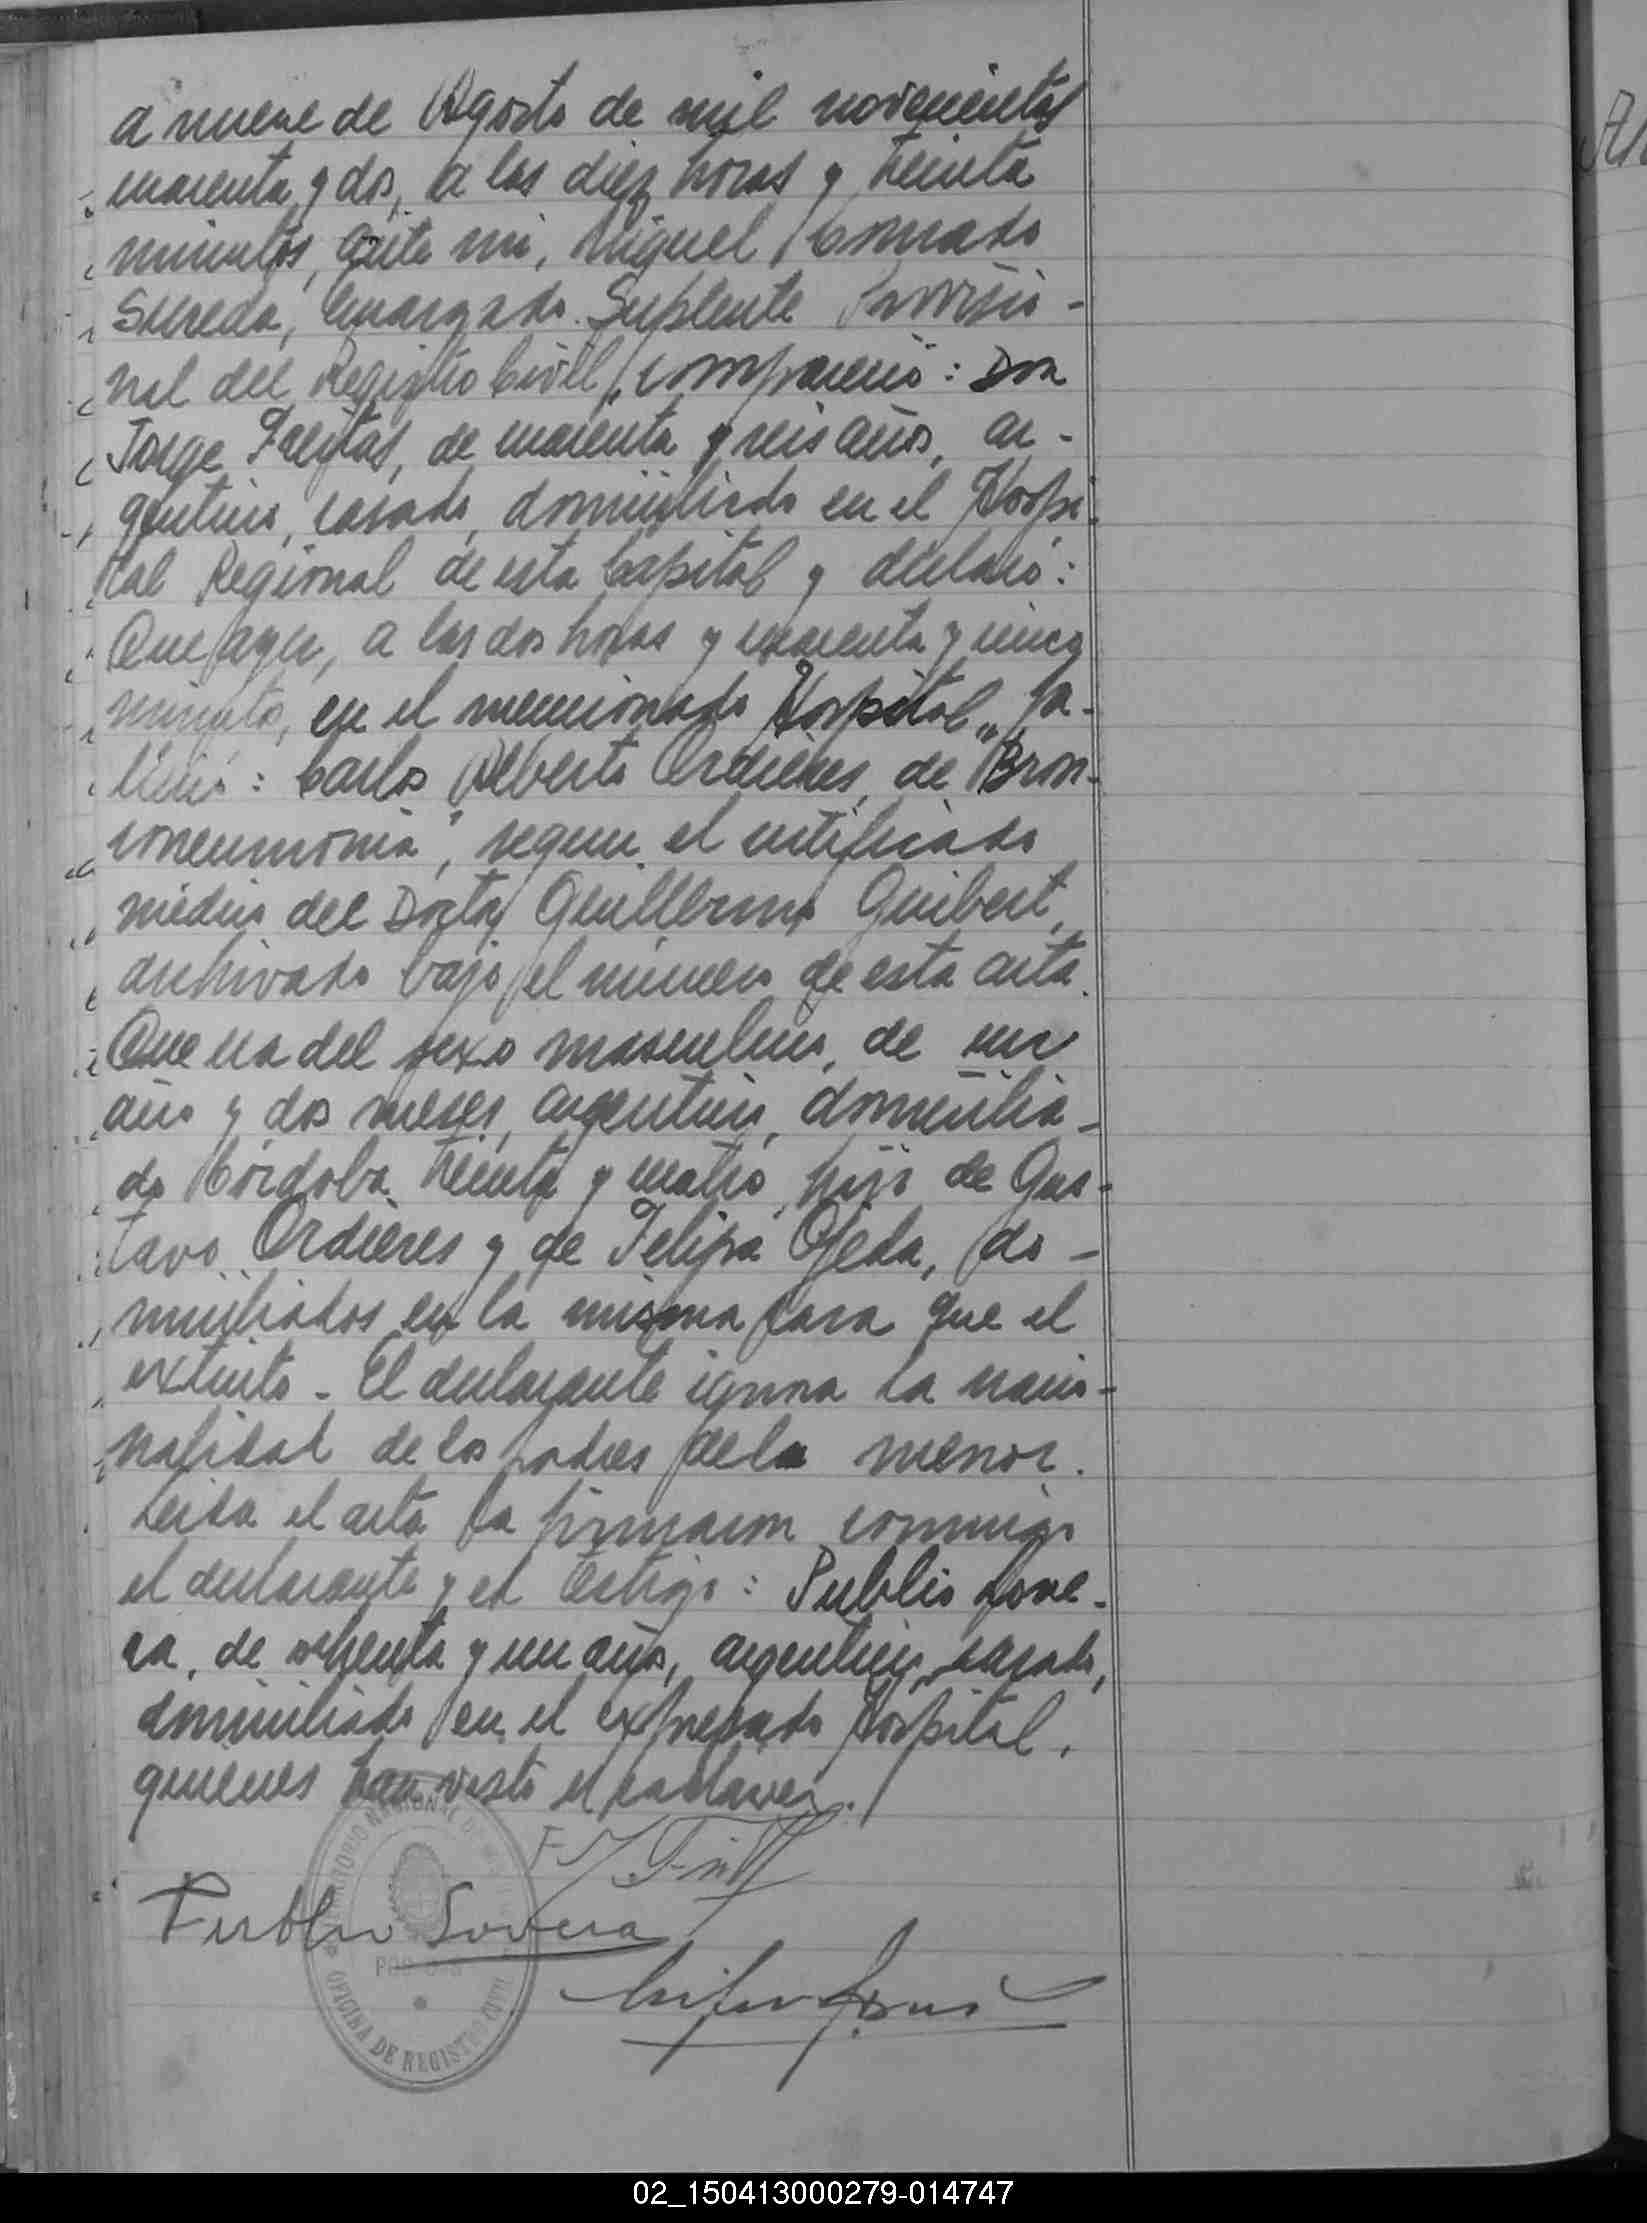 a nueve de Agosto de mil novecientos
cuarenta y dos, a las diez horas y treinta
minutos, ante mi, Miguel Conrado
Sureda, Encargado Suplente Proviso-
nal del Registro Civil, compareció: Don
Jorge Freytas, de cuarenta y seis años, ar-
gentino, casado, domiciliado en el Hospi-
tal Regional de esta Capital y declaró:
Que ayer, a las dos horas y cuarenta y cinco
minutos, en el mencionado Hospital, fa-
lleció: Carlos Alberto Ordieres, de "Bron-
coneumonia", segun el certificado
médico del Doctor Guillermo Guibert,
archivado bajo el número de esta acta.
Que era del sexo masculino, de un
año y dos meses, argentino, domicilia-
do Córdoba treinta y cuatro, hijo de Gus-
tavo Ordieres y de Felipa Ojeda, do-
miciliados en la misma casa que el
extinto. - El declarante ignora la nacio-
nalidad de los padres del menor.
Leida el acta la firmaron conmigo
el declarante y el testigo: Publio Sove-
ra, de ochenta y un años, argentino, casado,
domiciliado en el expresado Hospital,
quienes han visto el cadaver.
Publio Sovera
TERRITORIO NACIONAL DE
OFICINA DE REGISTRO CIVIL
02_150413000279-014747